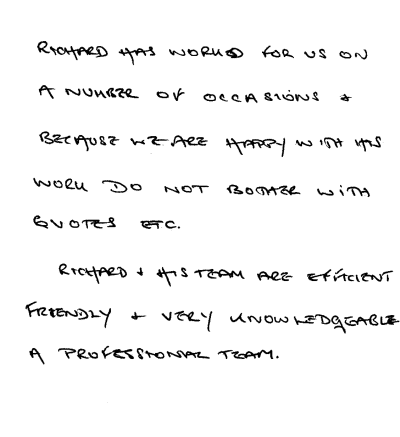 RICHARD HAS WORKED FOR US ON
A NUMBER OF OCCASIONS +
BECAUSE WE ARE HAPPY WITH HIS
WORK DO NOT BOTHER WITH
QUOTES ETC.
RICHARD + HIS TEAM ARE EFFICIENT
FRIENDLY + VERY KNOWLEDGEABLE
A PROFESSIONAL TEAM.